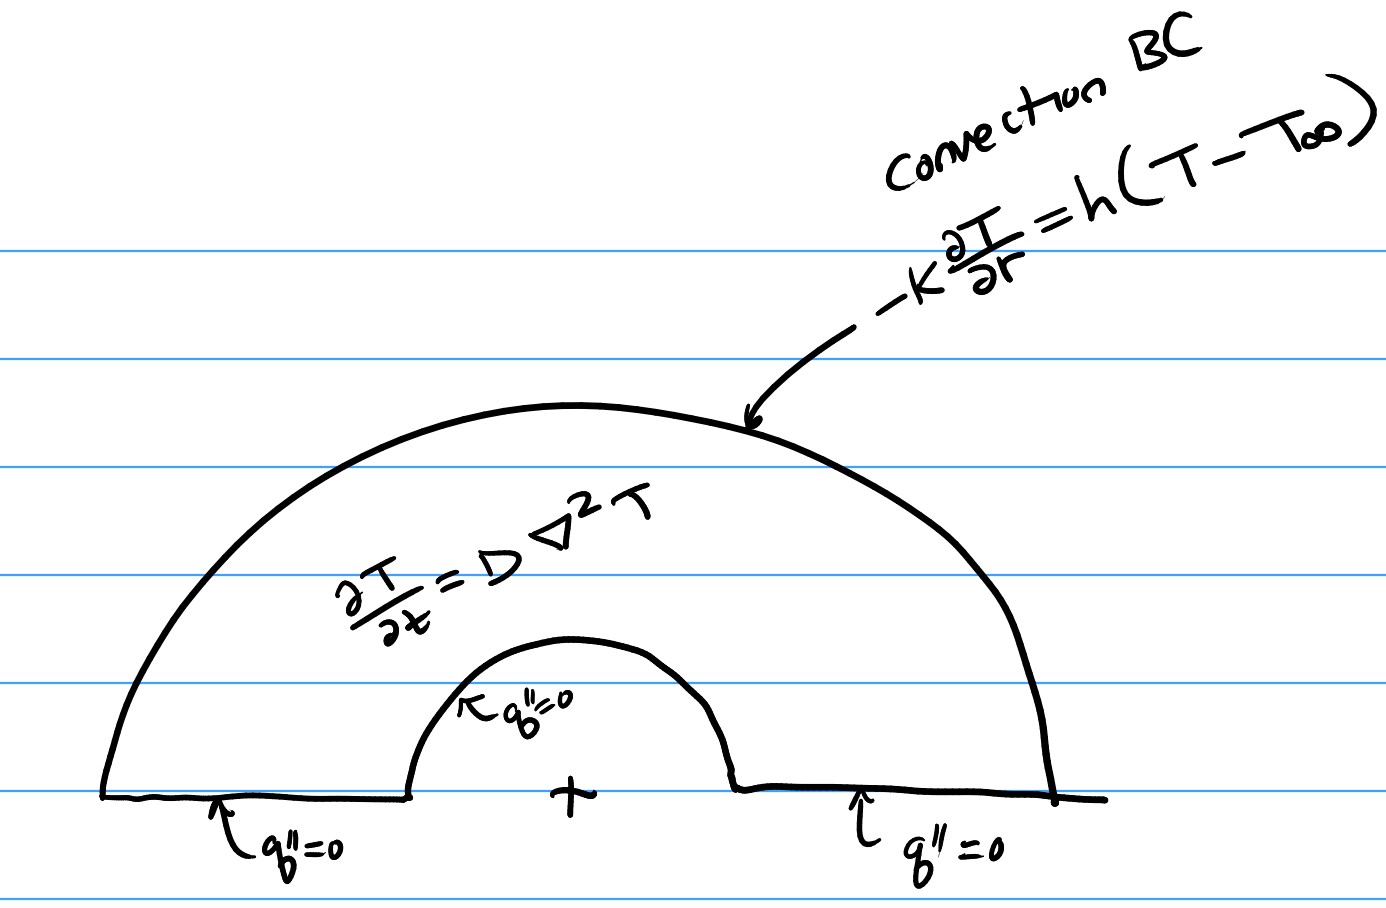 Convection BC
-K ∂T/∂r = h(T - T∞)
∂T/∂t = D ∇² T
q''=0
q''=0
q''=0